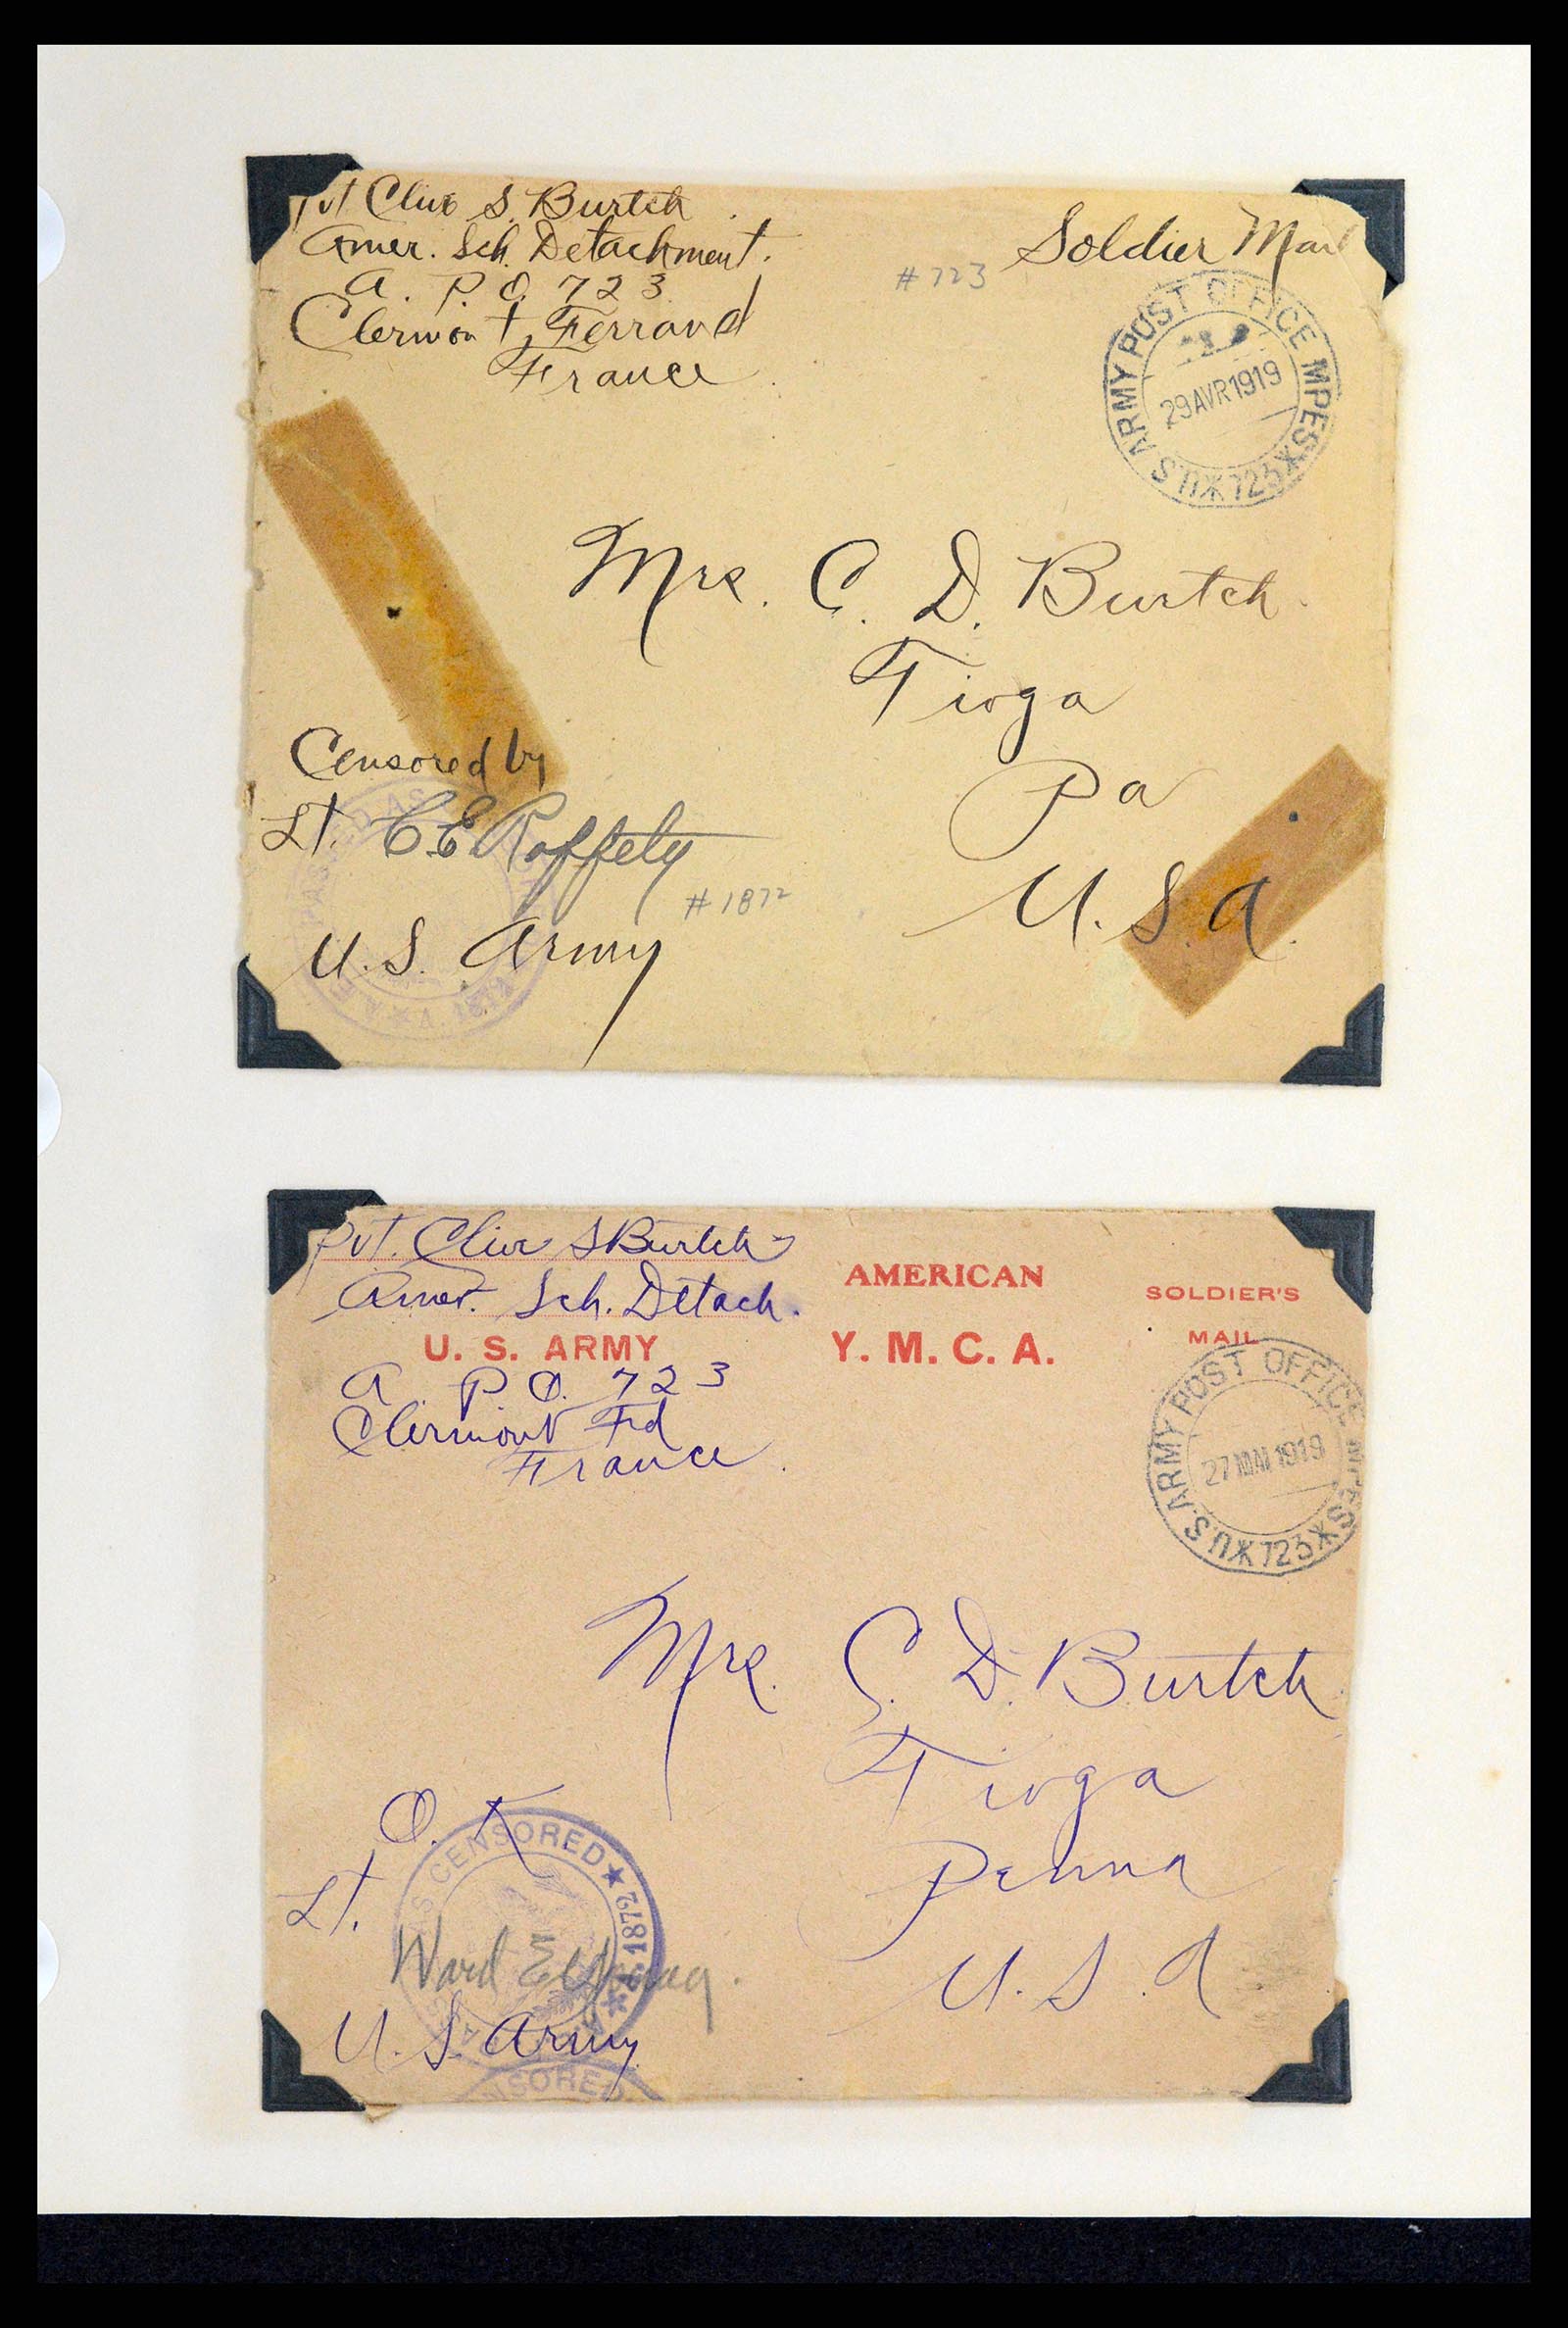 Pvt Clive S. Burtch
Amer. Sch. Detachment.
A. P. O. 723
Clermont, Ferrand
France
Soldier Mail
#723
U.S. ARMY POST OFFICE MPES
29 AVR 1919
723
Mrs. C. D. Burtch
Tioga
Pa
U.S.A.
Censored by
Lt. C E Raffety
#1872
U.S. Army
PASSED AS
A.E.F.
1872
Pvt. Clive S Burtch
Amer. Sch. Detach.
U. S. ARMY
A. P. O. 723
Clermont Frd
France
AMERICAN
Y. M. C. A.
SOLDIER'S
MAIL
U.S. ARMY POST OFFICE MPES
27 MAI 1919
723
Mrs. C. D. Burtch
Tioga
Penna
U.S.A
O. K
Lt.
Ward E
U.S. Army
AS CENSORED
1872
NSORED